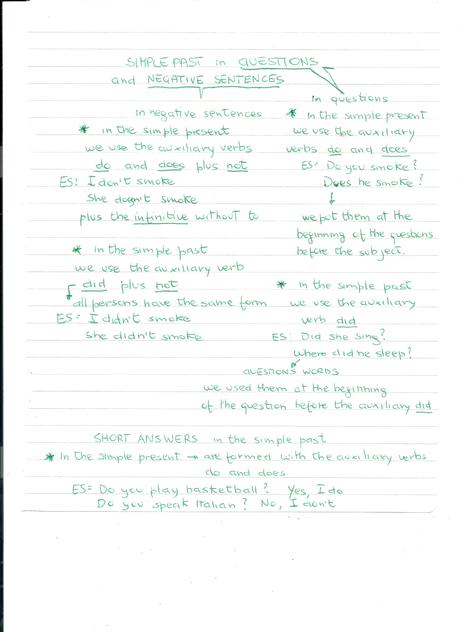 SIMPLE PAST in QUESTIONS
and NEGATIVE SENTENCES
in negative sentences
* in the simple present
we use the auxiliary verbs
do and does plus not
ES: I don't smoke
She doesn't smoke
plus the infinitive without to
* in the simple past
we use the auxiliary verb
did plus not
all persons have the same form
ES: I didn't smoke
She didn't smoke
in questions
* in the simple present
we use the auxiliary
verbs do and does
ES: Do you smoke?
Does he smoke?
we put them at the
beginning of the questions
before the subject.
* in the simple past
we use the auxiliary
verb did
ES: Did she sing?
Where did he sleep?
QUESTIONS WORDS
we used them at the beginning
of the question before the auxiliary did
SHORT ANSWERS in the simple past
* In the simple present → are formed with the auxiliary verbs
do and does
ES: Do you play basketball? Yes, I do
Do you speak Italian? No, I don't